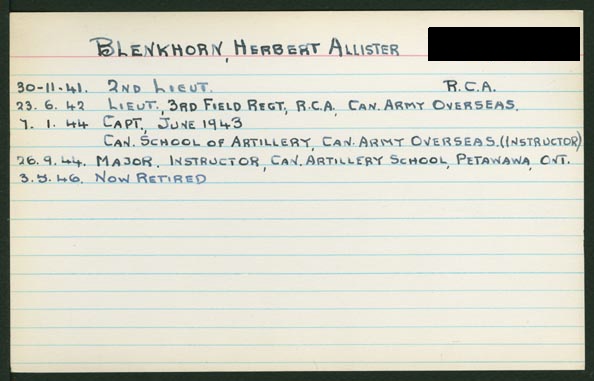 BLENKHORN, HERBERT ALLISTER
30-11-41. 2ND LIEUT. R.C.A.
23.6.42 LIEUT., 3RD FIELD REGT, R.C.A. CAN. ARMY OVERSEAS.
7.1.44 CAPT., JUNE 1943
CAN. SCHOOL OF ARTILLERY, CAN. ARMY OVERSEAS. (INSTRUCTOR)
26.9.44. MAJOR. INSTRUCTOR, CAN. ARTILLERY SCHOOL, PETAWAWA, ONT.
3.5.46. NOW RETIRED